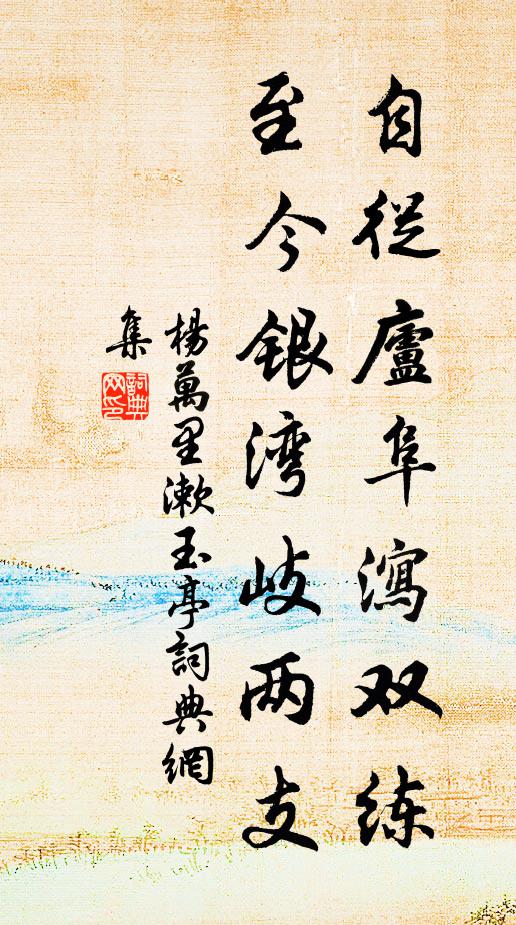 自從廬阜瀉双练
至今银湾歧两支
楊萬里漱玉亭詞典網
集
詞典
网印